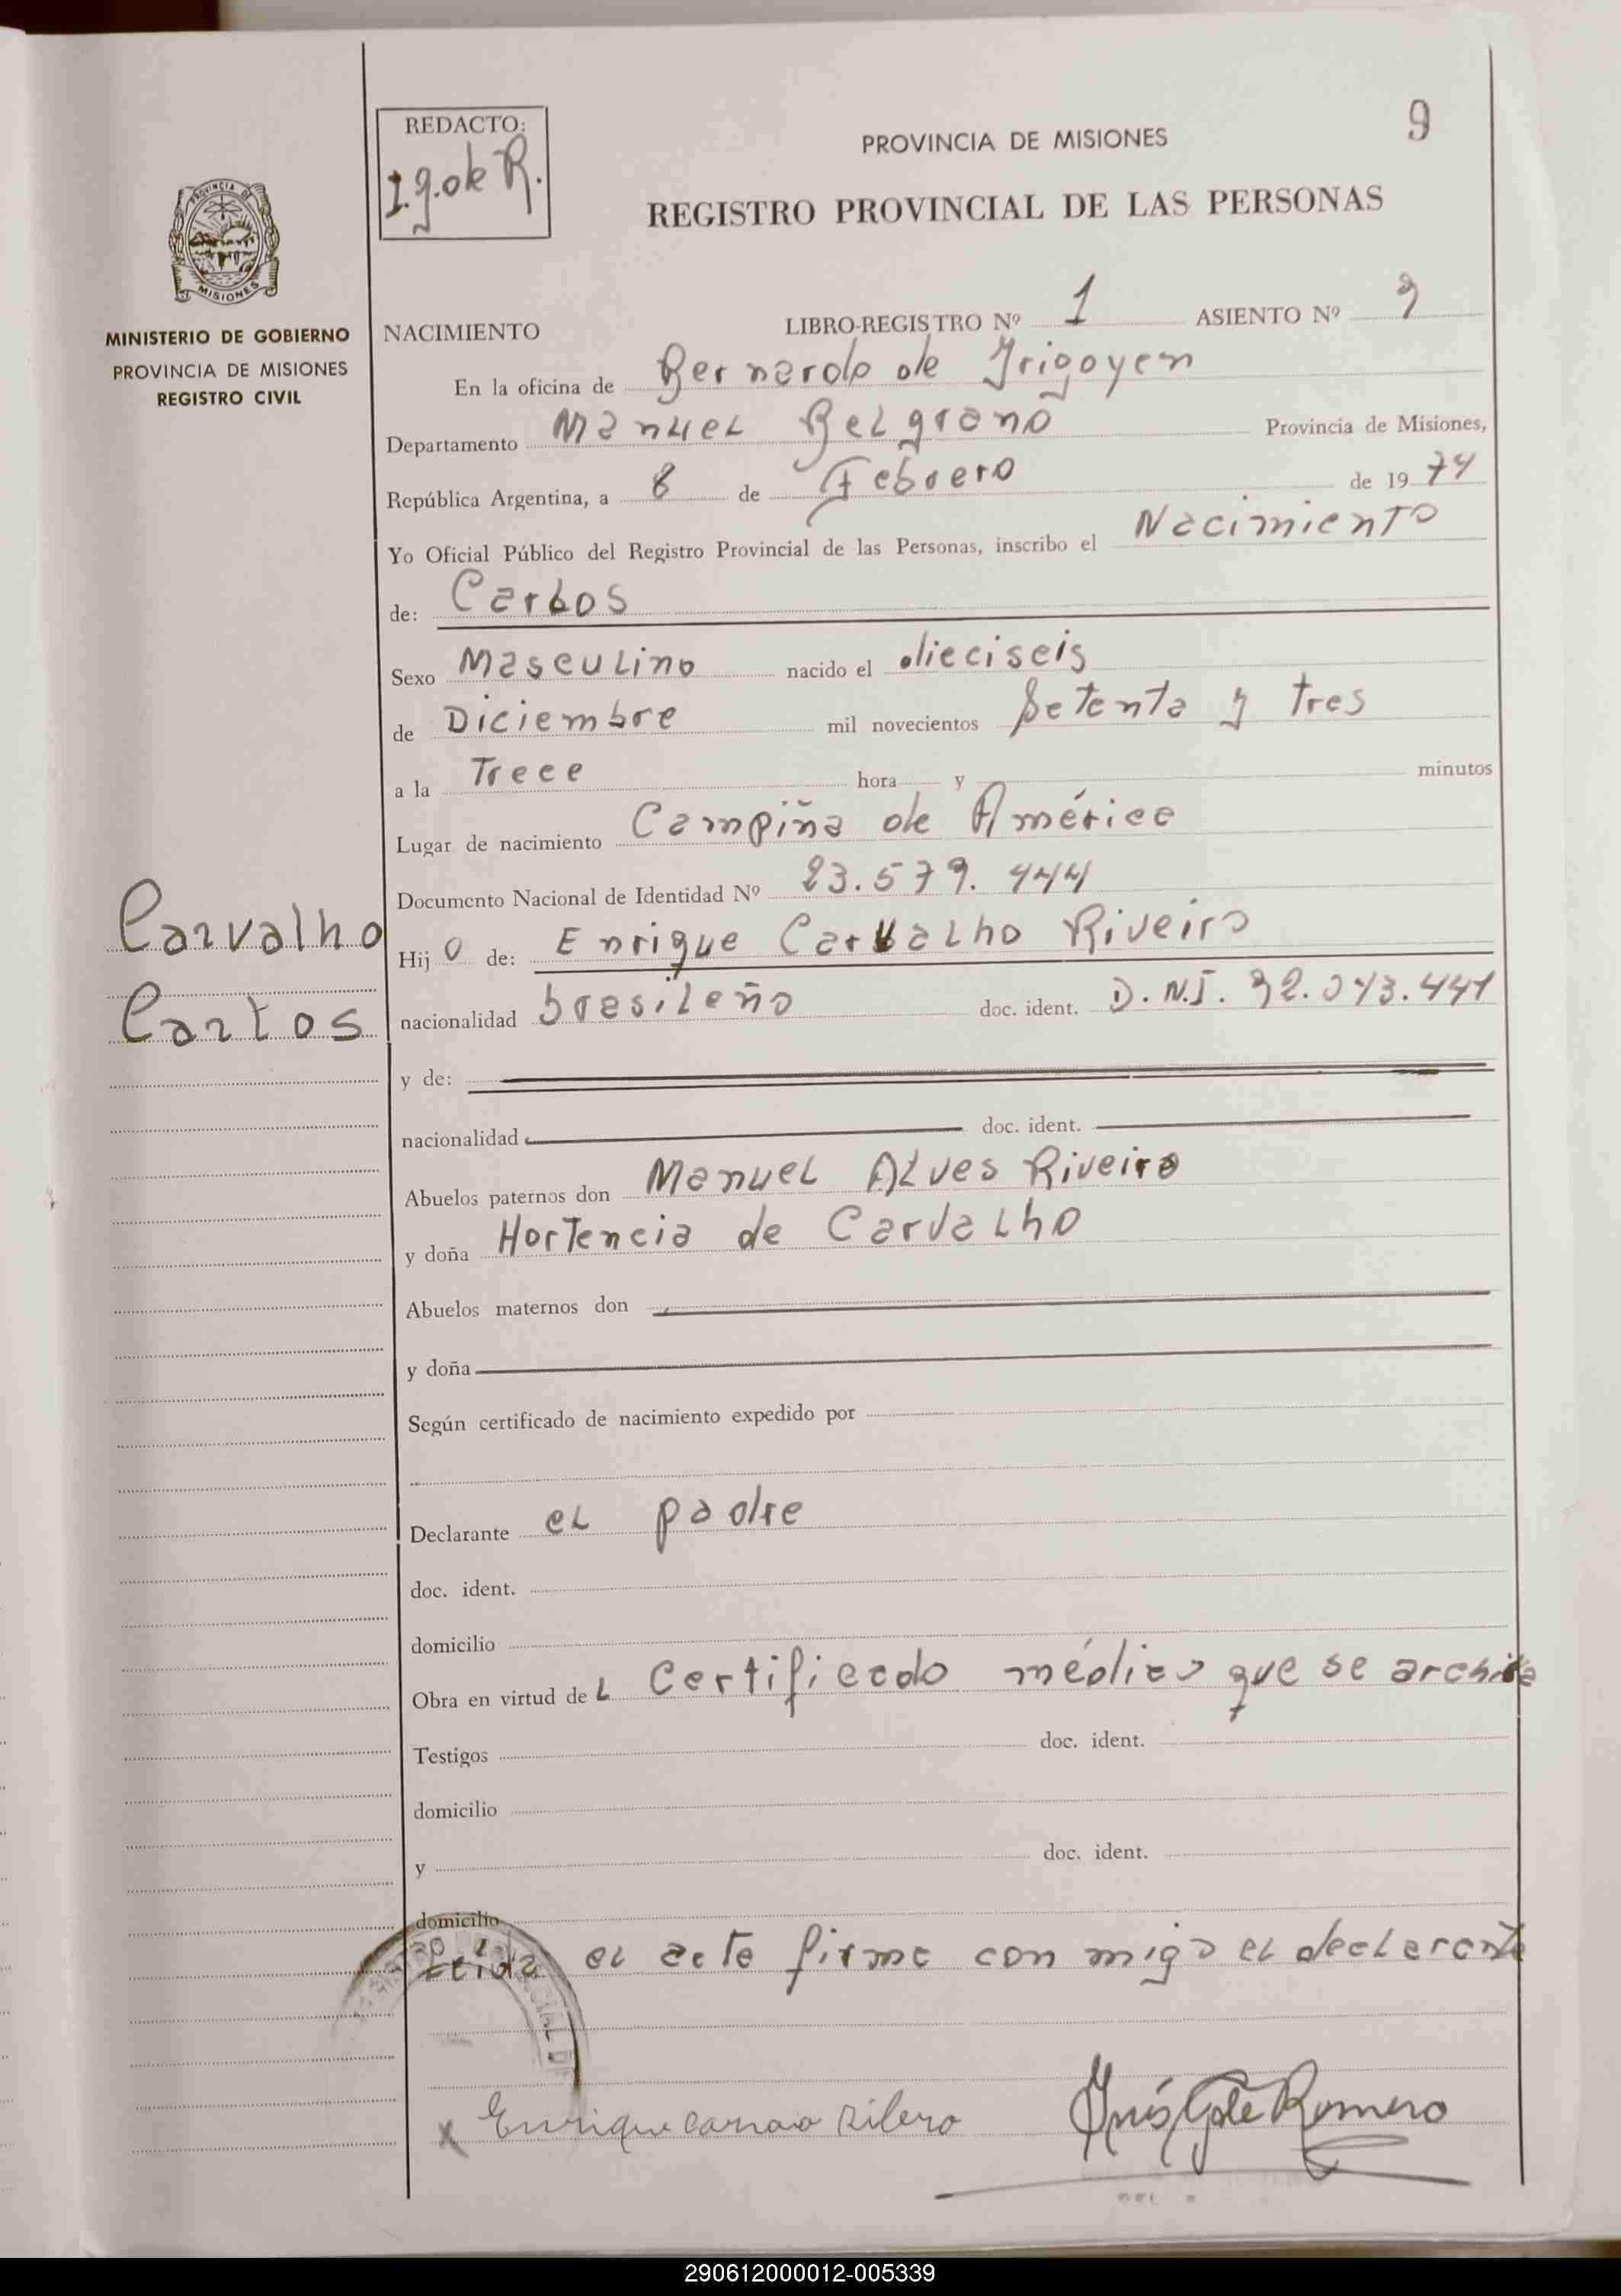 9
REDACTO:
I.g. de R.
PROVINCIA DE MISIONES
REGISTRO PROVINCIAL DE LAS PERSONAS
PROVINCIA DE
MISIONES
MINISTERIO DE GOBIERNO
PROVINCIA DE MISIONES
REGISTRO CIVIL
NACIMIENTO LIBRO-REGISTRO Nº 1 ASIENTO Nº 9
En la oficina de Bernardo de Irigoyen
Departamento Manuel Belgrano Provincia de Misiones,
República Argentina, a 8 de Febrero de 1974
Yo Oficial Público del Registro Provincial de las Personas, inscribo el Nacimiento
de: Carlos
Sexo Masculino nacido el dieciseis
de Diciembre mil novecientos Setenta y tres
a la Trece hora y minutos
Lugar de nacimiento Campiña de América
Documento Nacional de Identidad Nº 23.579.444
Carvalho
Carlos
Hijo de: Enrique Carvalho Riveiro
nacionalidad brasileño doc. ident. D.N.I. 92.043.441
y de:
nacionalidad doc. ident.
Abuelos paternos don Manuel Alves Riveiro
y doña Hortencia de Carvalho
Abuelos maternos don
y doña
Según certificado de nacimiento expedido por
Declarante el padre
doc. ident.
domicilio
Obra en virtud del Certificado médico que se archiva
Testigos doc. ident.
domicilio
y doc. ident.
domicilio
Leida el acta firma con migo el declarante
x Enrique Ribero
Inés G de Romero
290612000012-005339